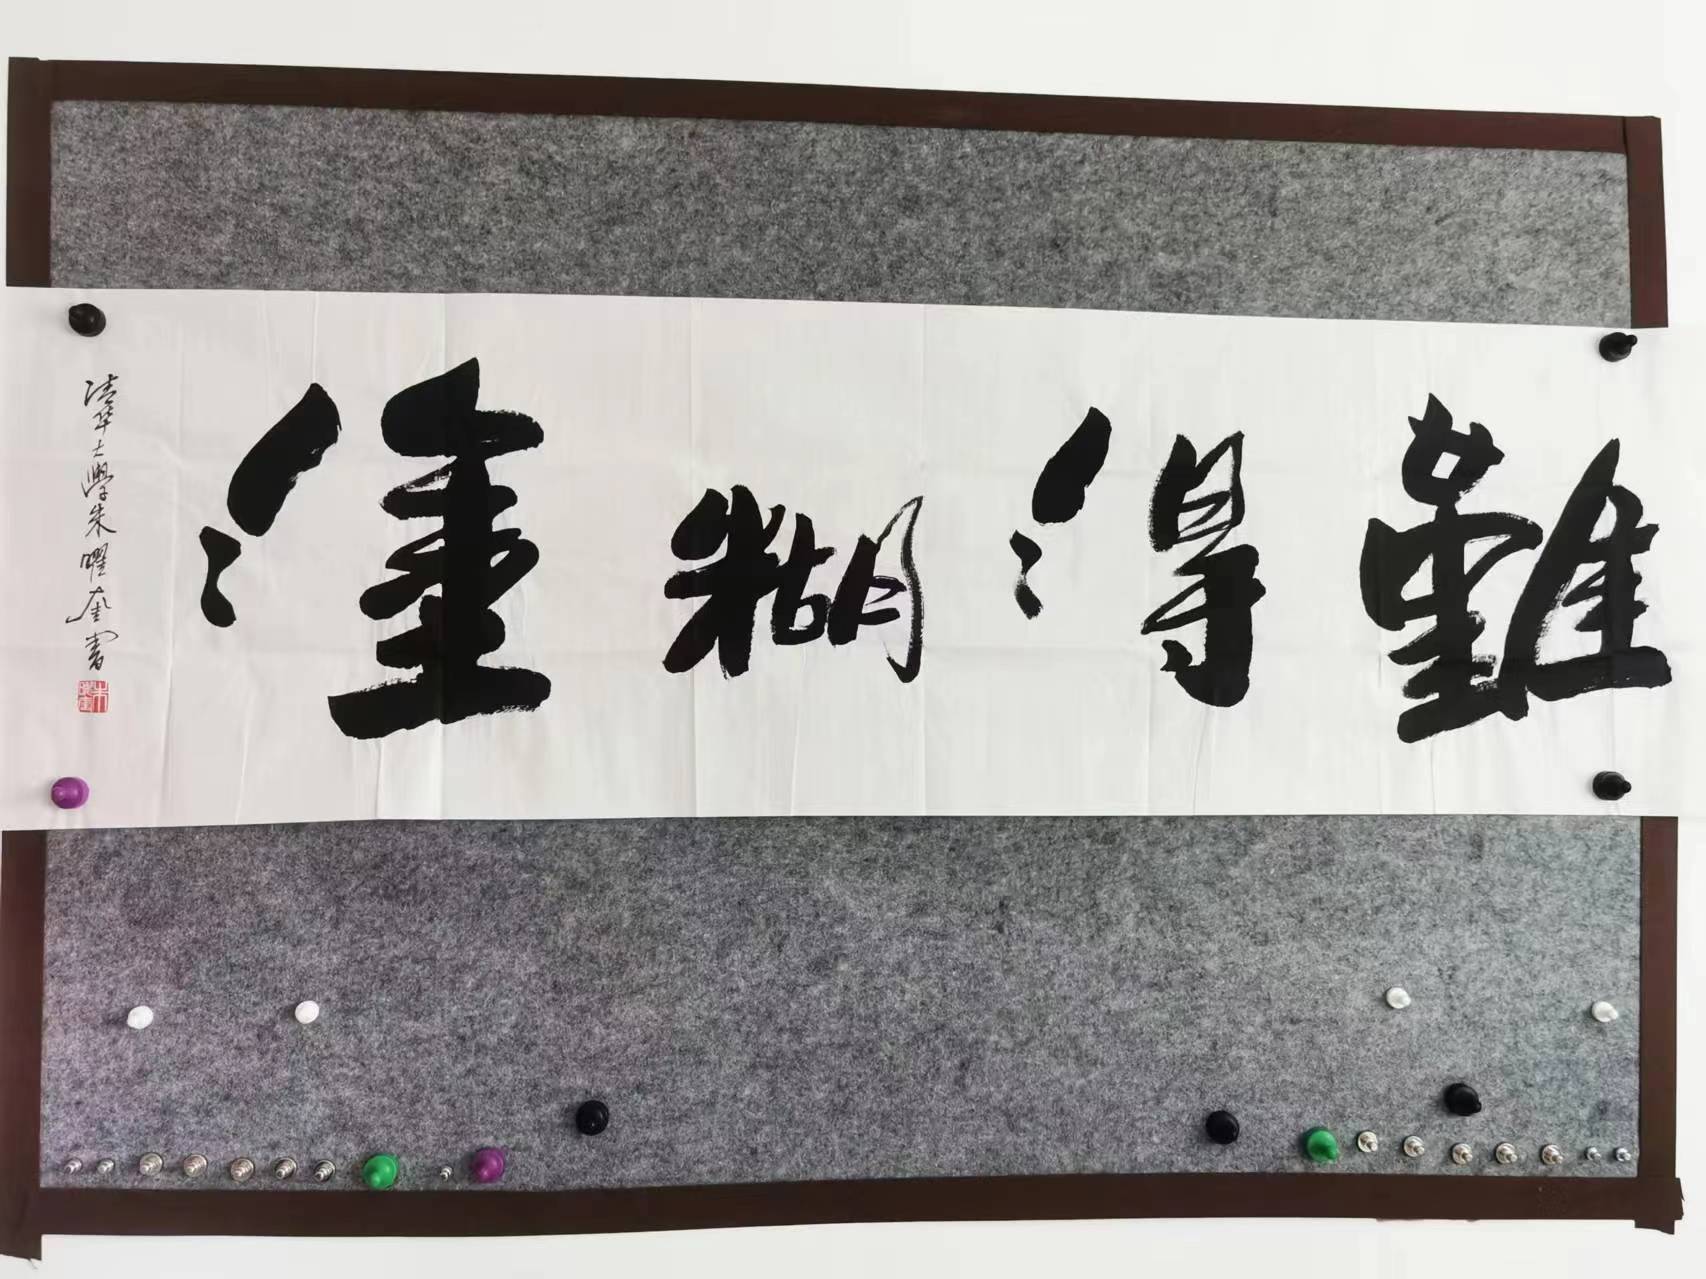 難得糊塗
清华大學朱曜奎書